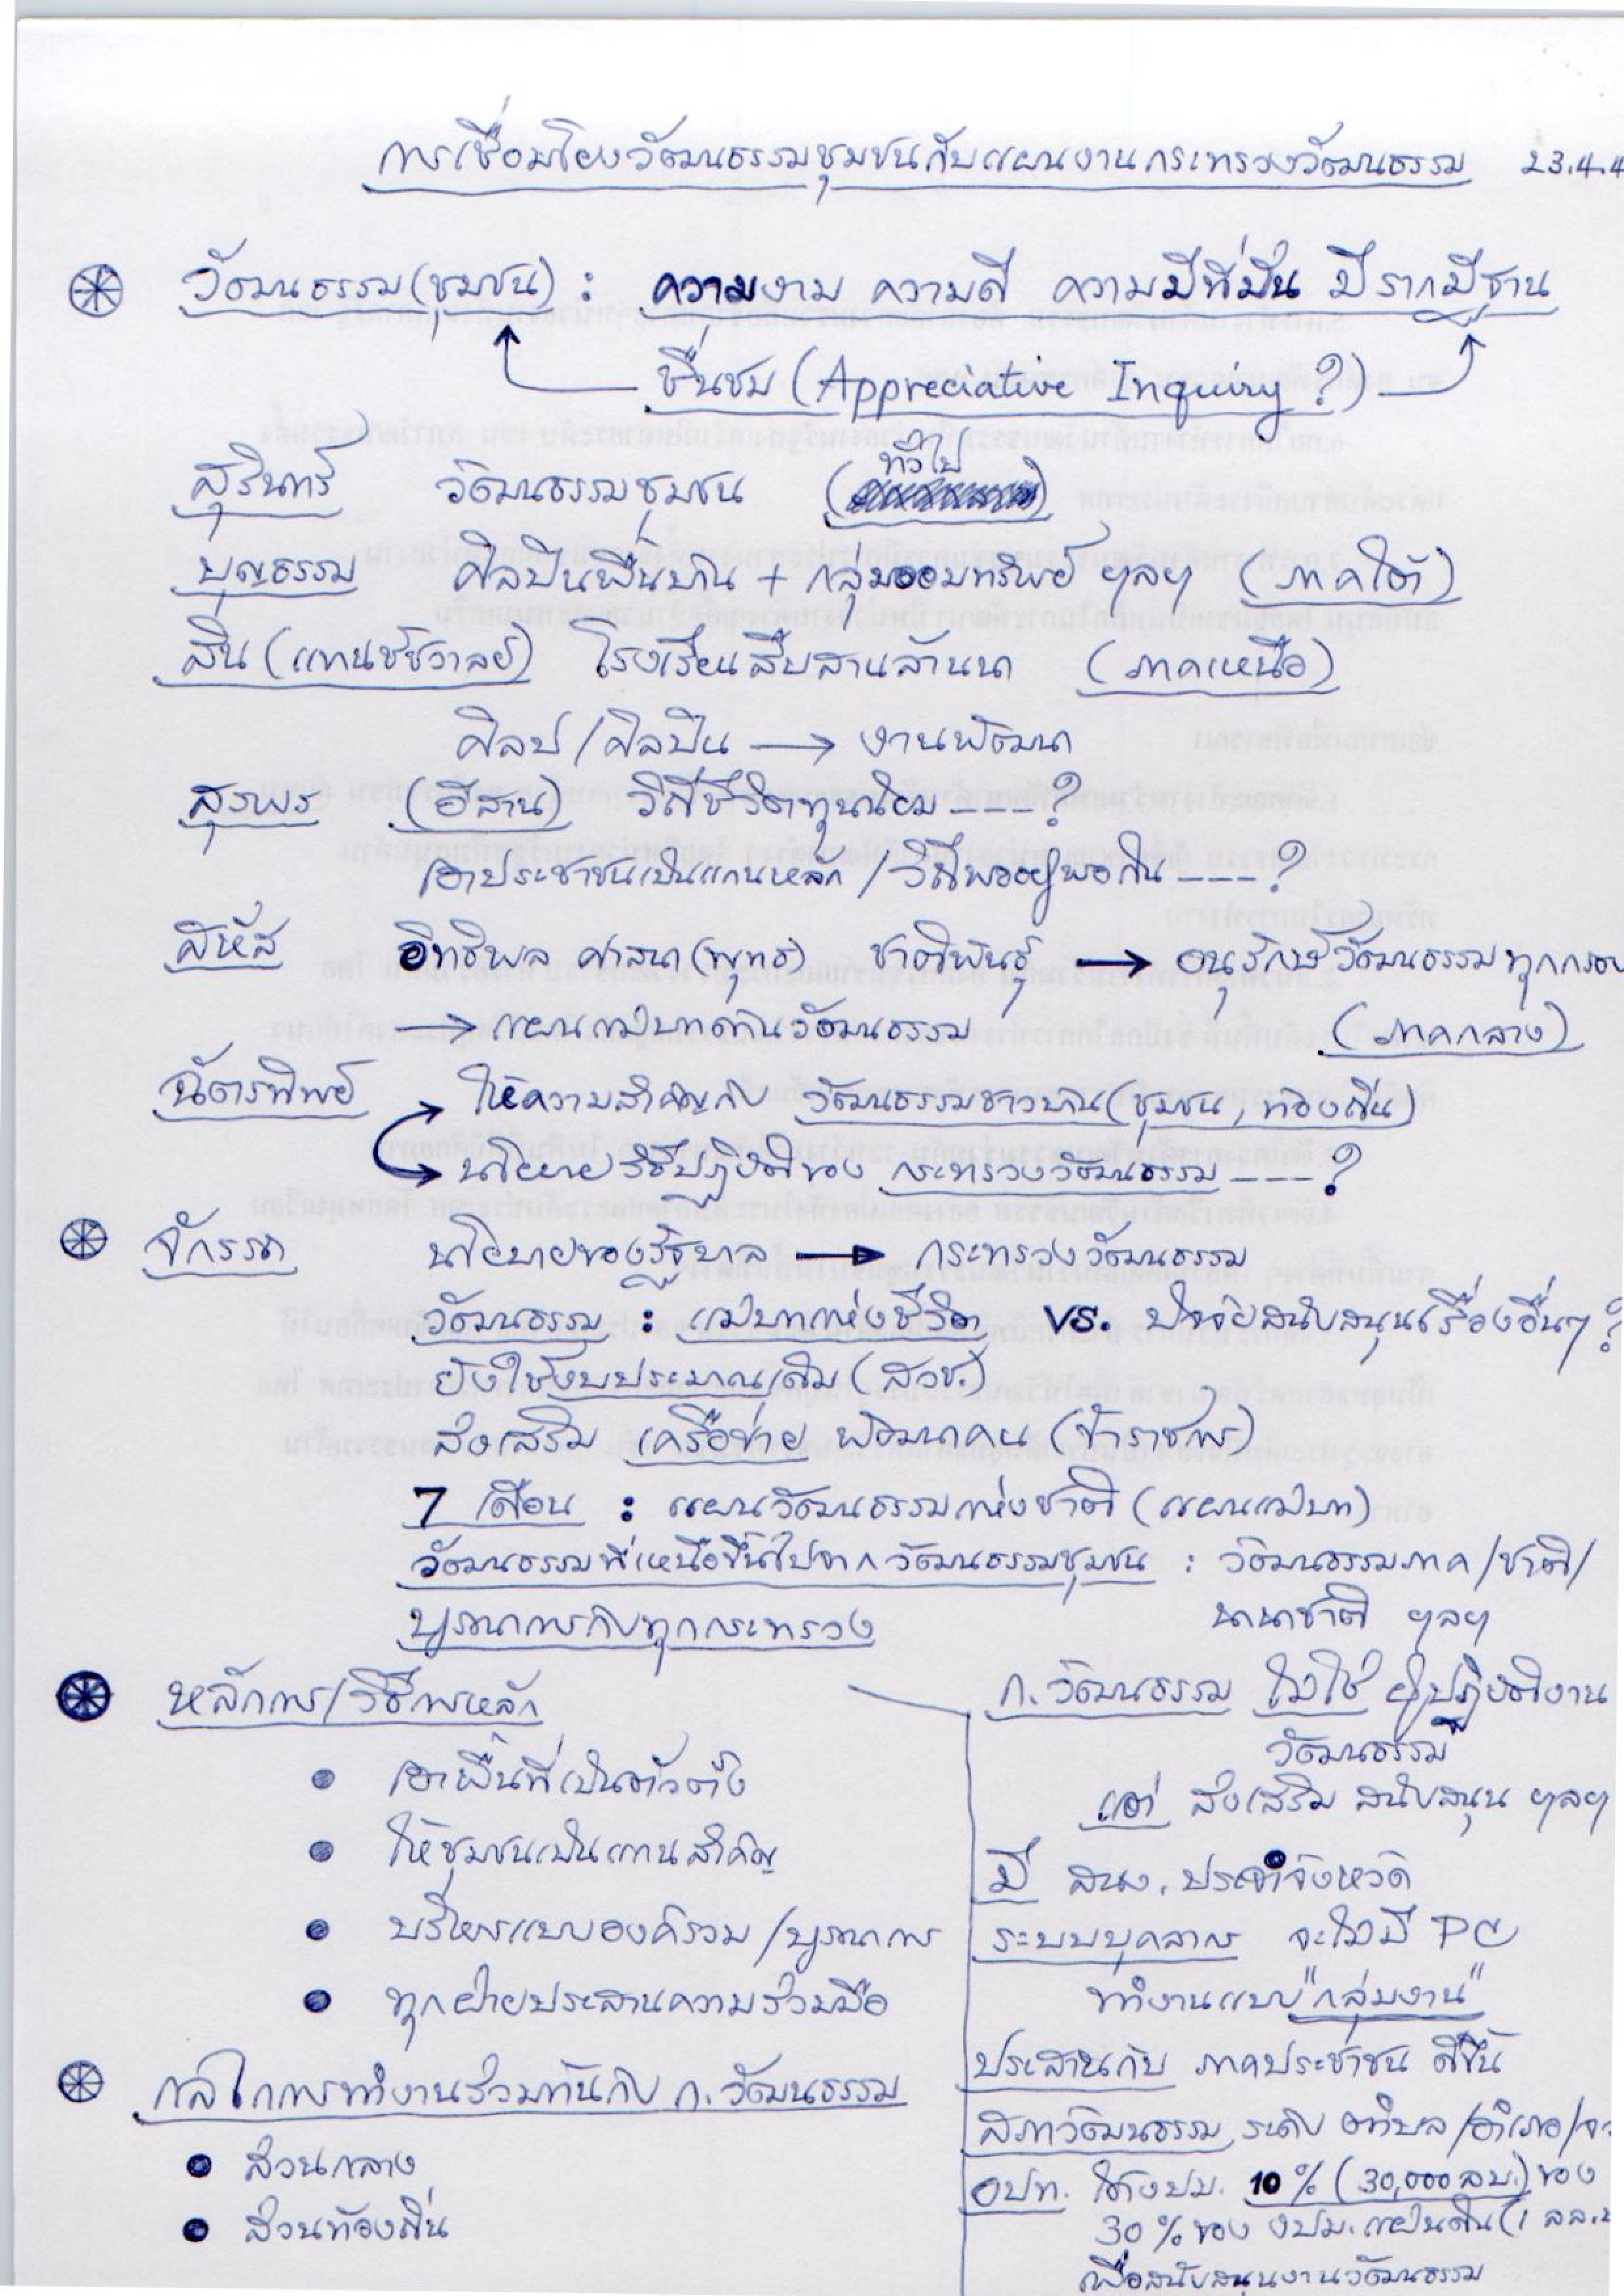 การเชื่อมโยงวัฒนธรรมชุมชนกับแผนงานกระทรวงวัฒนธรรม 23.4.4
วัฒนธรรม (ชุมชน) : ความงาม ความดี ความมีที่มั่น มีรากมีฐาน
ชื่นชม (Appreciative Inquiry ?)
สุรินทร์ วัฒนธรรมชุมชน (ทั่วไป)
บุญธรรม ศิลปินพื้นบ้าน + กลุ่มออมทรัพย์ ฯลฯ (ภาคใต้)
สิน (แทนชัชวาลย์) โรงเรียนสืบสานล้านนา (ภาคเหนือ)
ศิลป/ศิลปิน → งานพัฒนา
สุรพร (อีสาน) วิถีชีวิตทุนนิยม ---?
เอาประชาชนเป็นแกนหลัก / วิถีพออยู่พอกิน ---?
สิหัส อิทธิพล ศาสนา (พุทธ) ชาติพันธุ์ → อนุรักษ์วัฒนธรรมทุกกรอบ
→ แผนแม่บทด้านวัฒนธรรม (ภาคกลาง)
ฉัตรทิพย์ ให้ความสำคัญกับ วัฒนธรรมชาวบ้าน (ชุมชน, ท้องถิ่น)
นโยบายวิธีปฏิบัติของ กระทรวงวัฒนธรรม ---?
จักรรถ นโยบายของรัฐบาล → กระทรวงวัฒนธรรม
วัฒนธรรม : แม่บทแห่งชีวิต vs. ปัจจัยสนับสนุนเรื่องอื่นๆ ?
ยังใช้งบประมาณเดิม (สวช.)
ส่งเสริม เครือข่าย พัฒนาคน (ข้าราชการ)
7 เดือน : แผนวัฒนธรรมแห่งชาติ (แผนแม่บท)
วัฒนธรรมที่เหนือขึ้นไปจากวัฒนธรรมชุมชน : วัฒนธรรมภาค/ชาติ/
นานาชาติ ฯลฯ
บูรณาการกับทุกกระทรวง
หลักการ/วิธีการหลัก
เอาพื้นที่เป็นตัวตั้ง
ให้ชุมชนเป็นแกนสำคัญ
บริหารแบบองค์รวม/บูรณาการ
ทุกฝ่ายประสานความร่วมมือ
กลไกการทำงานร่วมกันกับ ก.วัฒนธรรม
ส่วนกลาง
ส่วนท้องถิ่น
ก.วัฒนธรรม ไม่ใช่ ผู้ปฏิบัติงาน
วัฒนธรรม
แต่ ส่งเสริม สนับสนุน ฯลฯ
มี สนง. ประจำจังหวัด
ระบบบุคลากร จะไม่มี PC
ทำงานแบบ "กลุ่มงาน"
ประสานกับ ภาคประชาชน ดีขึ้น
สภาวัฒนธรรม ระดับ ตำบล/อำเภอ/จ
อปท. ใช้งปม. 10% (30,000 ลบ.) ของ
30% ของ งปม.แผ่นดิน (1 ลล.
เพื่อสนับสนุนงานวัฒนธรรม